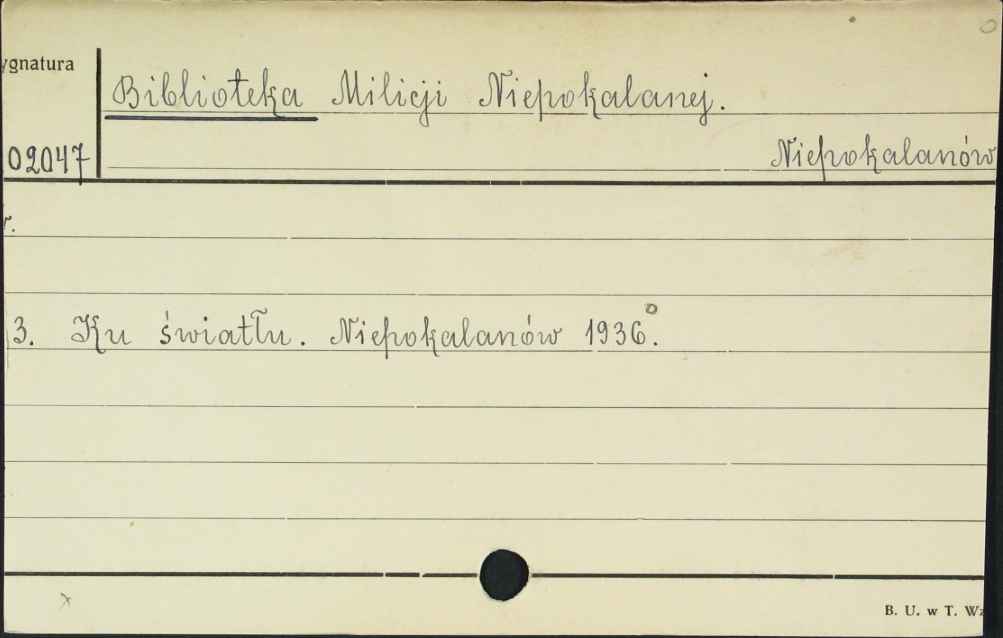 ygnatura
Biblioteka Milicji Niepokalanej.
02047
Niepokalanów
r.
3. Ku światłu. Niepokalanów 1936⁰.
B. U. w T. Wz